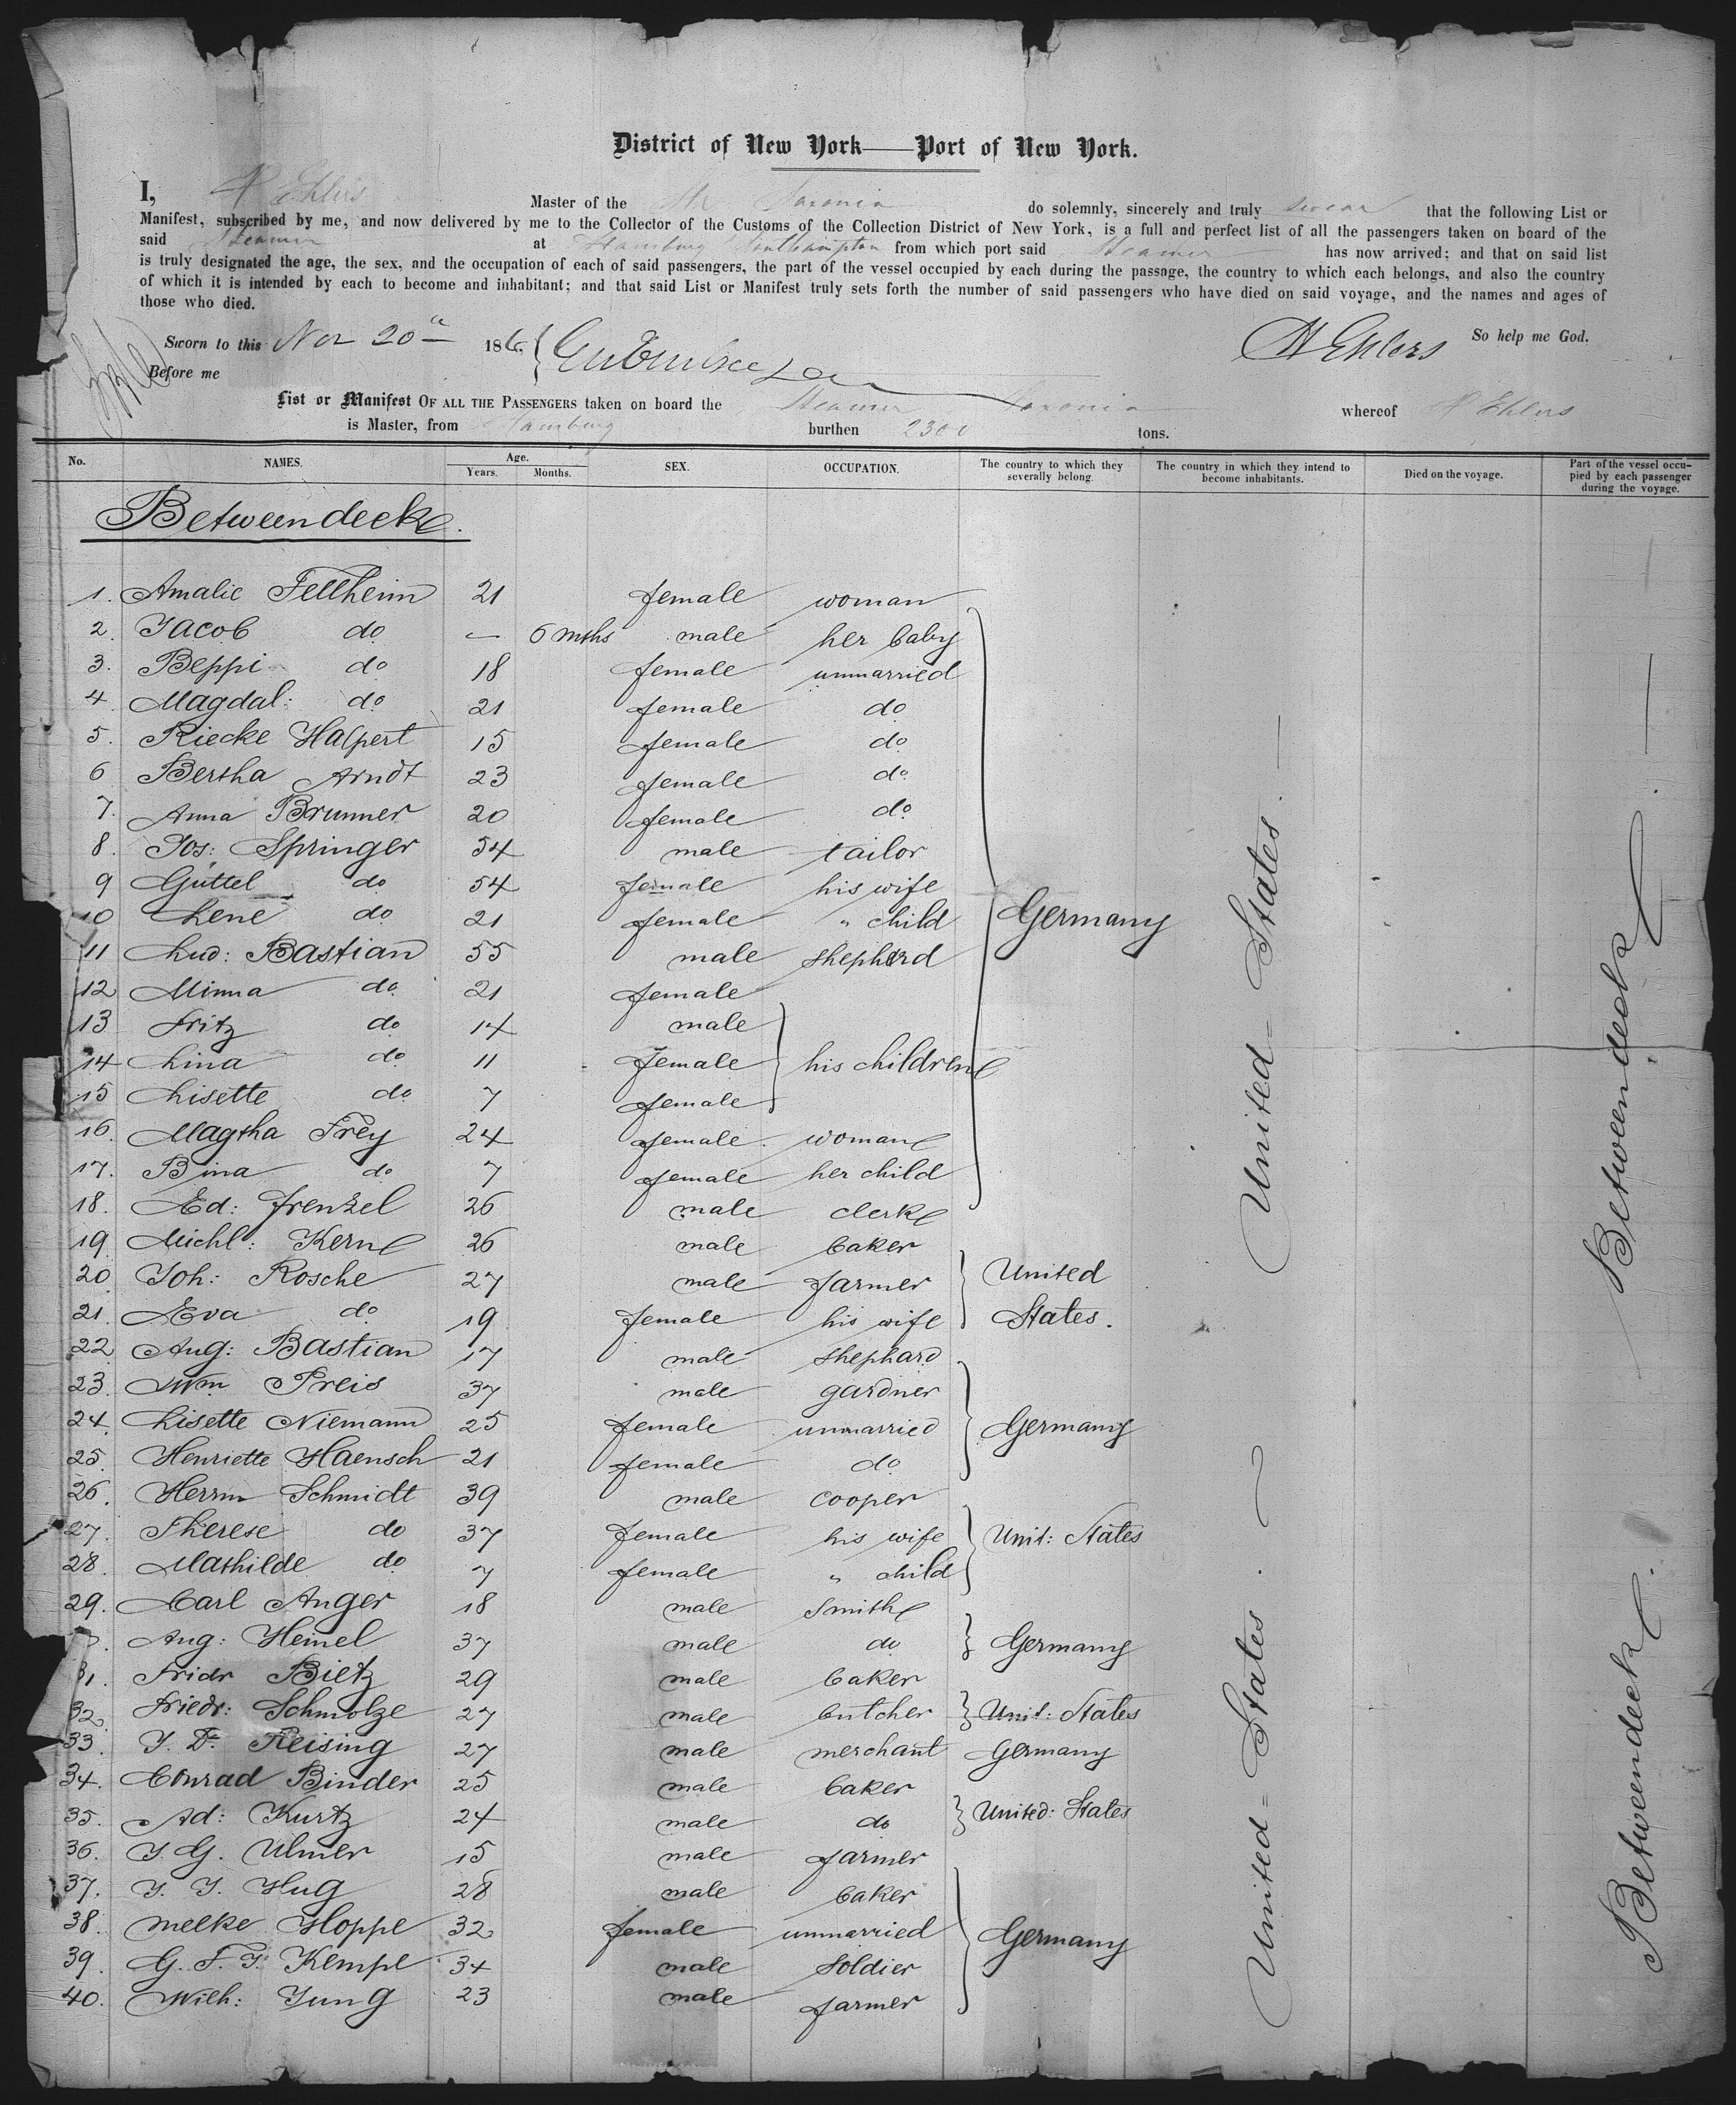 District of New York—Port of New York.
I, H Ehlers Master of the Str Saxonia do solemnly, sincerely and truly swear that the following List or
Manifest, subscribed by me, and now delivered by me to the Collector of the Customs of the Collection District of New York, is a full and perfect list of all the passengers taken on board of the
said Steamer at Hamburg Southampton from which port said Steamer has now arrived; and that on said list
is truly designated the age, the sex, and the occupation of each of said passengers, the part of the vessel occupied by each during the passage, the country to which each belongs, and also the country
of which it is intended by each to become and inhabitant; and that said List or Manifest truly sets forth the number of said passengers who have died on said voyage, and the names and ages of
those who died.
Sworn to this Nov 20th 186 H Ehlers So help me God.
Before me
List or Manifest OF ALL THE PASSENGERS taken on board the Steamer Saxonia whereof H Ehlers
is Master, from Hamburg burthen 2300 tons.
No. NAMES. Age. Years. Months. SEX. OCCUPATION. The country to which they severally belong. The country in which they intend to become inhabitants. Died on the voyage. Part of the vessel occupied by each passenger during the voyage.
Betweendeck.
1. Amalie Fellheim 21 female woman
2. Jacob do — 6 mths male her baby
3. Beppi do 18 female unmarried
4. Magdal: do 21 female do
5. Riecke Halpert 15 female do
6 Bertha Arndt 23 female do
7. Anna Brunner 20 female do
8. Jos: Springer 54 male tailor
9 Guttel do 54 female his wife
10 Lene do 21 female " child Germany
11 Lud: Bastian 55 male shepherd
12 Minna do 21 female
13 Fritz do 14 male
14 Lina do 11 female his children
15 Lisette do 7 female
16. Magtha Frey 24 female woman
17. Bina do 7 female her child
18. Ed: Frenzel 26 male clerk
19. Michl: Kern 26 male baker
20 Joh: Rosche 27 male farmer United
21. Eva do 19 female his wife States.
22 Aug: Bastian 17 male shephard
23. Wm Preis 37 male gardner
24. Lisette Niemann 25 female unmarried Germany
25. Henriette Haensch 21 female do
26. Herrm Schmidt 39 male cooper
27. Therese do 37 female his wife Unit: States
28. Mathilde do 7 female " child
29. Carl Anger 18 male smith
Aug: Heinel 37 male do Germany
31. Fridr Bietz 29 male baker
32. Friedr: Schmolze 27 male butcher Unit: States
33. J. Dr. Reising 27 male merchant Germany
34. Conrad Binder 25 male baker
35. Ad: Kurtz 24 male do United: States
36. J. G. Ulmer 15 male farmer
37. J. J. Hug 28 male baker
38. Melke Hoppe 32 female unmarried Germany
39. G. F. J. Kempe 34 male soldier
40. Wilh: Jung 23 male farmer
United=States.
United=States.
Betweendeck.
Betweendeck.